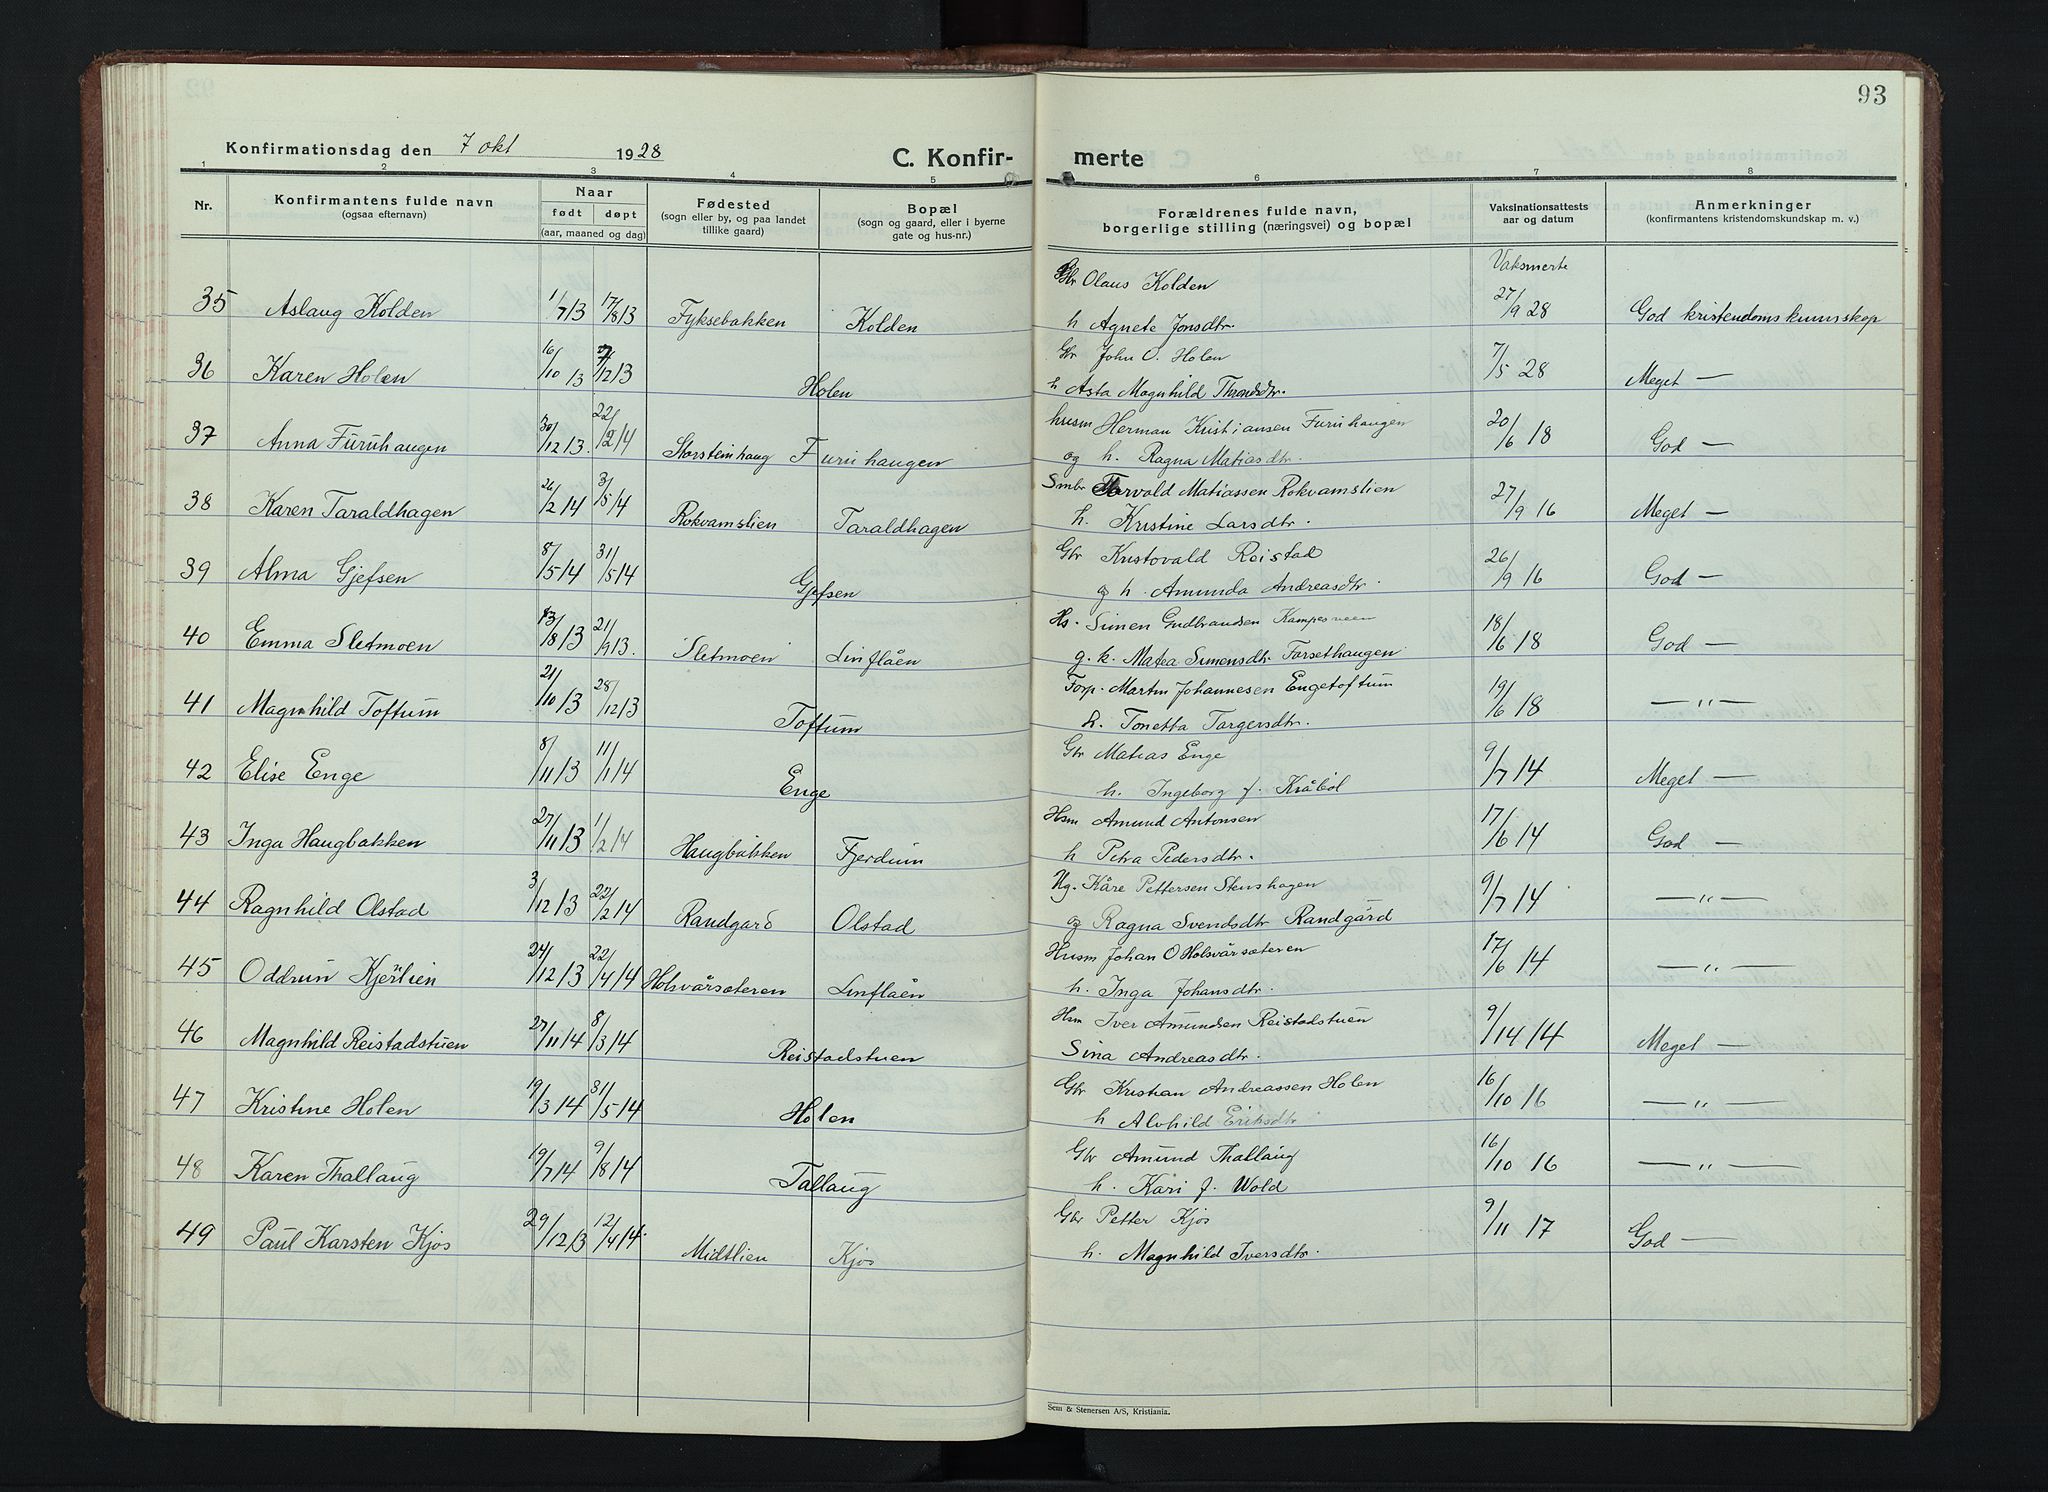 93
Konfirmationsdag den 7 okt 1928
C. Konfir-
merte
1 2 3 4 5 6 7 8
Nr. Konfirmantens fulde navn (ogsaa efternavn) Naar født døpt (aar, maaned og dag) Fødested (sogn eller by, og paa landet tillike gaard) Bopæl (sogn og gaard, eller i byerne gate og hus-nr.) Forældrenes fulde navn, borgerlige stilling (næringsvei) og bopæl Vaksinationsattests aar og datum Anmerkninger (konfirmantens kristendomskundskap m. v.)
Gbr Olaus Kolden Vaksinerte
35 Aslaug Kolden 1/7 13 17/8 13 Fyksebakken Kolden h Agnete Jonsdtr. 27/9 28 God kristendomskunnskap
Gbr John O. Holen
36 Karen Holen 16/10 13 7/12 13 Holen h Asta Magnhild Throndsdtr. 7/5 28 Meget —
husm Herman Kristiansen Furuhaugen
37 Anna Furuhaugen 30/12 13. 22/2 14 Storsteinhaug Furuhaugen og h. Ragna Matiasdtr. 20/6 18 God —
Smbr Torvald Matiassen Rokvamslien
38 Karen Taraldhagen 26/2 14 3/5 14 Rokvamslien Taraldhagen h. Kristine Larsdtr. 27/9 16 Meget —
Gbr Kristovald Reistad
39 Alma Gjefsen 8/5 14 31/5 14 Gjefsen og h. Amunda Andreasdtr. 26/9 16 God —
Hs. Simen Gudbrandsen Kampesveen
40 Emma Sletmoen 13/8 13 21/9 13. Sletmoen Linflåen g. k. Matea Simensdtr. Forsethaugen 18/6 18 God —
Forp. Martin Johannesen Engetoftum
41 Magnhild Toftum 21/10 13 28/12 13 Toftum h. Tonetta Torgersdtr. 19/6 18 — „ —
Gbr Matias Enge
42 Elise Enge 8/11 13 11/1 14 Enge h. Ingeborg f. Kråbøl 9/7 14 Meget —
Hsm Amund Antonsen
43 Inga Haugbakken 27/11 13 1/2 14 Haugbakken Fjerdum h Petra Pedersdtr. 17/6 14 God —
Ug. Kåre Pettersen Stenshagen
44 Ragnhild Olstad 3/12 13 22/2 14 Randgard Olstad og Ragna Svendsdtr Randgård 9/7 14 — „ —
Husm Johan O Holsvårsæteren
45 Oddrun Kjerlien 24/12 13 22/4 14 Holsvårsæteren Linflåen h. Inga Johansdtr. 17/6 14 — „ —
Hsm Iver Amundsen Reistadstuen
46 Magnhild Reistadstuen 27/11 14 8/3 14 Reistadstuen Sina Andreasdtr. 9/14 14 Meget —
Gbr Kristian Andreassen Holen
47 Kristine Holen 19/3 14 31/5 14 Holen h Alvhild Eriksdtr 16/10 16 — „ —
Gbr Amund Thallaug
48 Karen Thallaug 19/7 14 9/8 14 Tallaug h. Kari f. Wold 16/10 16 — „ —
Gbr Petter Kjos
49 Paul Karsten Kjos 29/12 13 12/4 14. Midtlien Kjos h. Magnhild Iversdtr. 9/11 17 God —
Sem & Stenersen A/S, Kristiania.